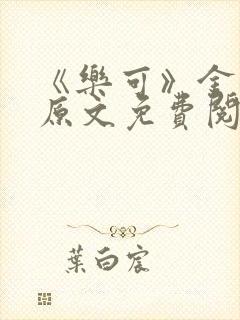 《樂可》全
原文免費閱
葉白宸